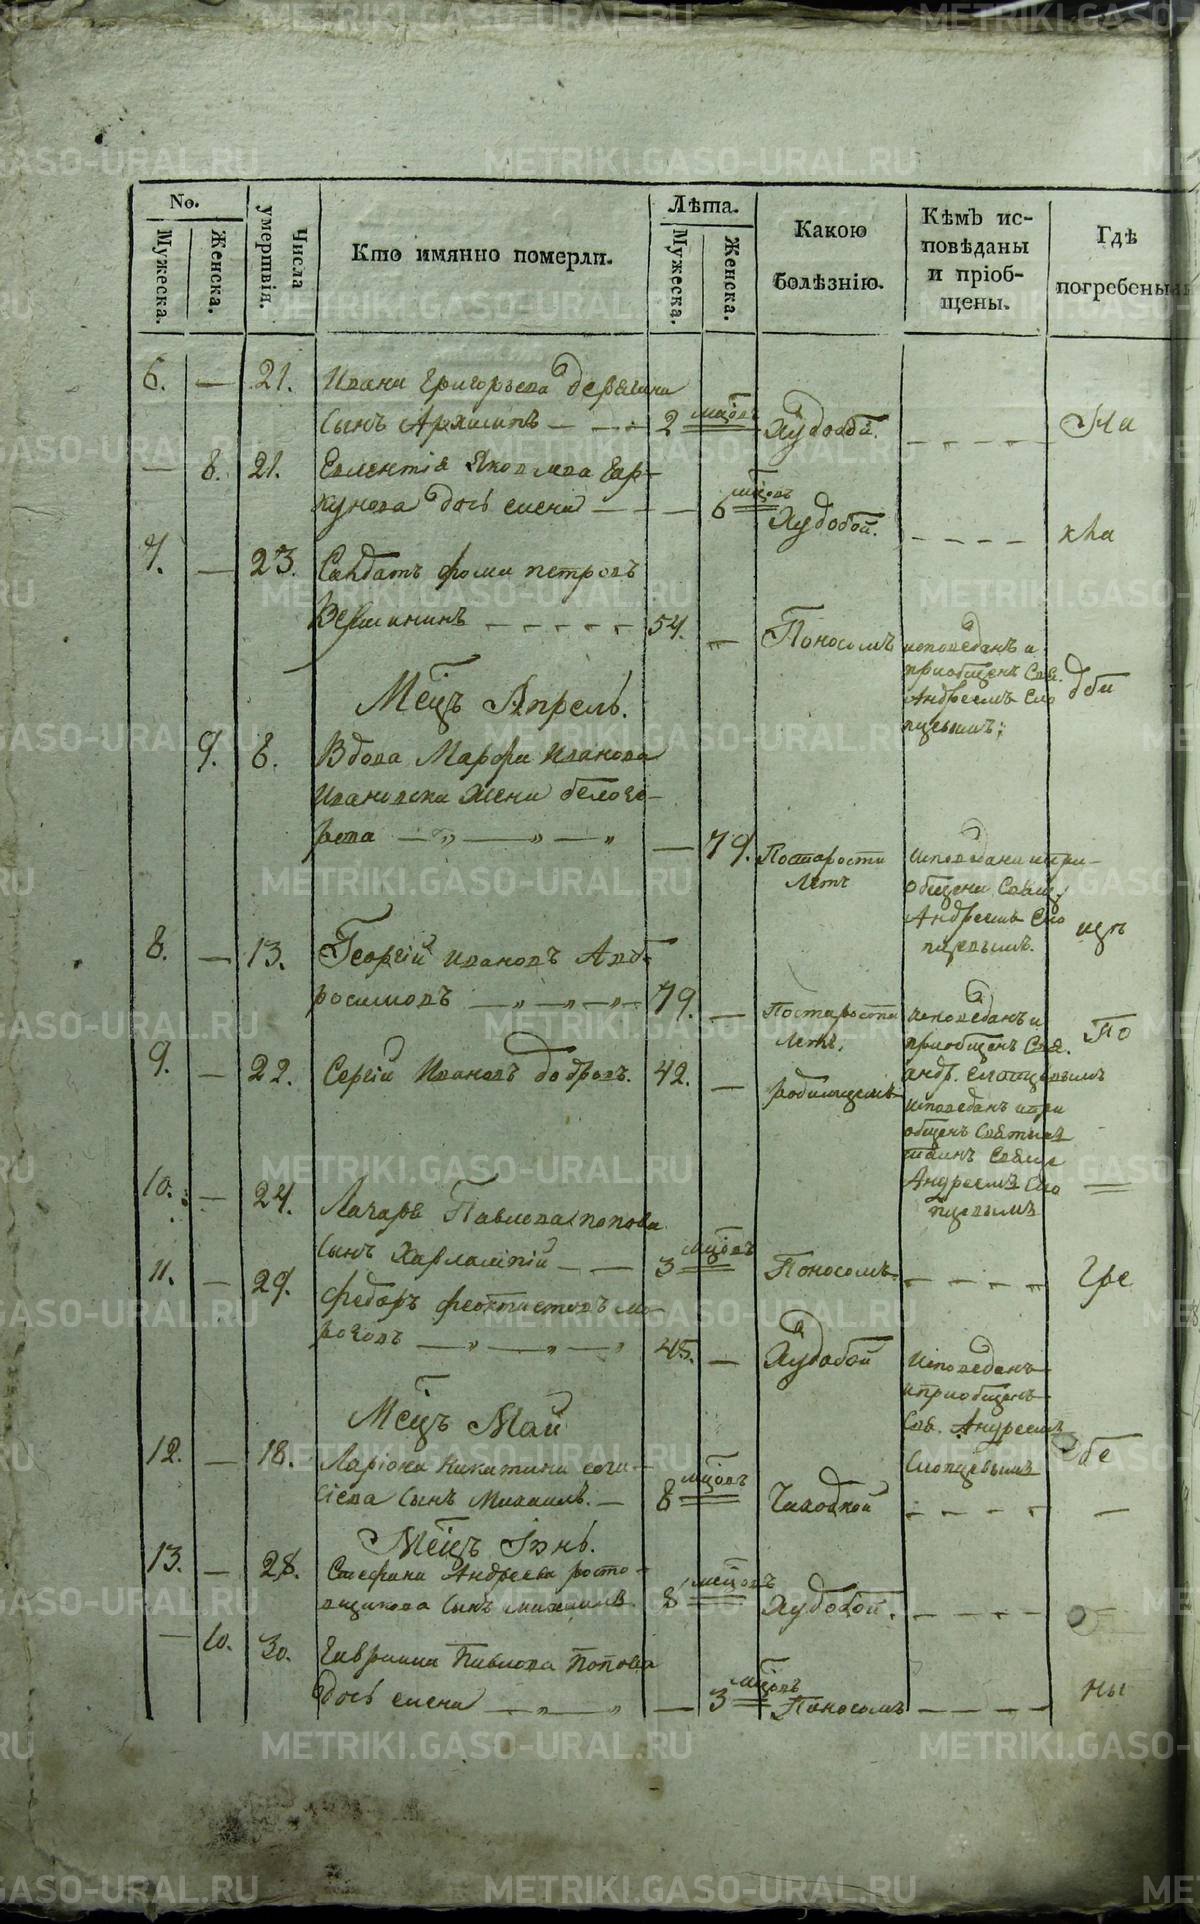 No.
Мужеска.
Женска.
Числа умертвія.
Кто имянно померли.
Лѣта.
Мужеска.
Женска.
Какою болѣзнію.
Кѣмъ исповѣданы и пріобщены.
Гдѣ погребены
6. — 21. Ивана Григорьева
сынъ Архипъ — — — 2 мцовъ Худобой. — — — — На
— 8. 21. Яковлева
дочь елена — — — 6 мцовъ Худобой. — — — — кла
7. — 23. Салдатъ фома петровъ
Вершининъ — — — — — 54. — Поносомъ исповеданъ и
приобщенъ Свя.
Андреемъ Сло
пцевымъ; дби
Мсцъ Апрель.
9. 8. Вдова Марфа Иванова
Ивановска Жена белобо-
рова — „ — „ — „ — 79. Постарости
летъ
Исповедана и при-
общена Свящ.
Андреемъ Сло
пцевымъ. щъ
8. — 13. Георгій Ивановъ Анд-
росимовъ — „ — „ — „ — 79. — Постарости
летъ.
исповеданъ и
приобщенъ Свя.
андр. слопцевымъ
По
9. — 22. Сергій Ивановъ добровъ. 42. — родимцемъ
исповеданъ и при
общенъ Святыхъ
таинъ Свящ
Андреемъ Сло
пцевымъ
10. — 24. Захара Павлова попова
сынъ Харлампій — — 3 мцовъ Поносомъ — — — — Гре
11. — 29. Федоръ феоктистовъ мо-
розовъ — „ — „ — „ 45. — Худобой
Исповеданъ
и приобщенъ
Свя. Андреемъ
Слопцевымъ
бе
Мсцъ Май
12. — 18. Ларіона Никитина
сынъ Михаилъ. — 8 мцовъ Чахоткой — — — — —
Мсцъ Іюнь.
13. — 28. Стефана Андреева росто-
вщикова сынъ михаилъ 8 мсцовъ Худобой. — — — —
— 10. 30. Гавриила Павлова Попова
дочь елена — „ — „ — 3 мцовъ Поносомъ — — — — ны
METRIKI.GASO-URAL.RU